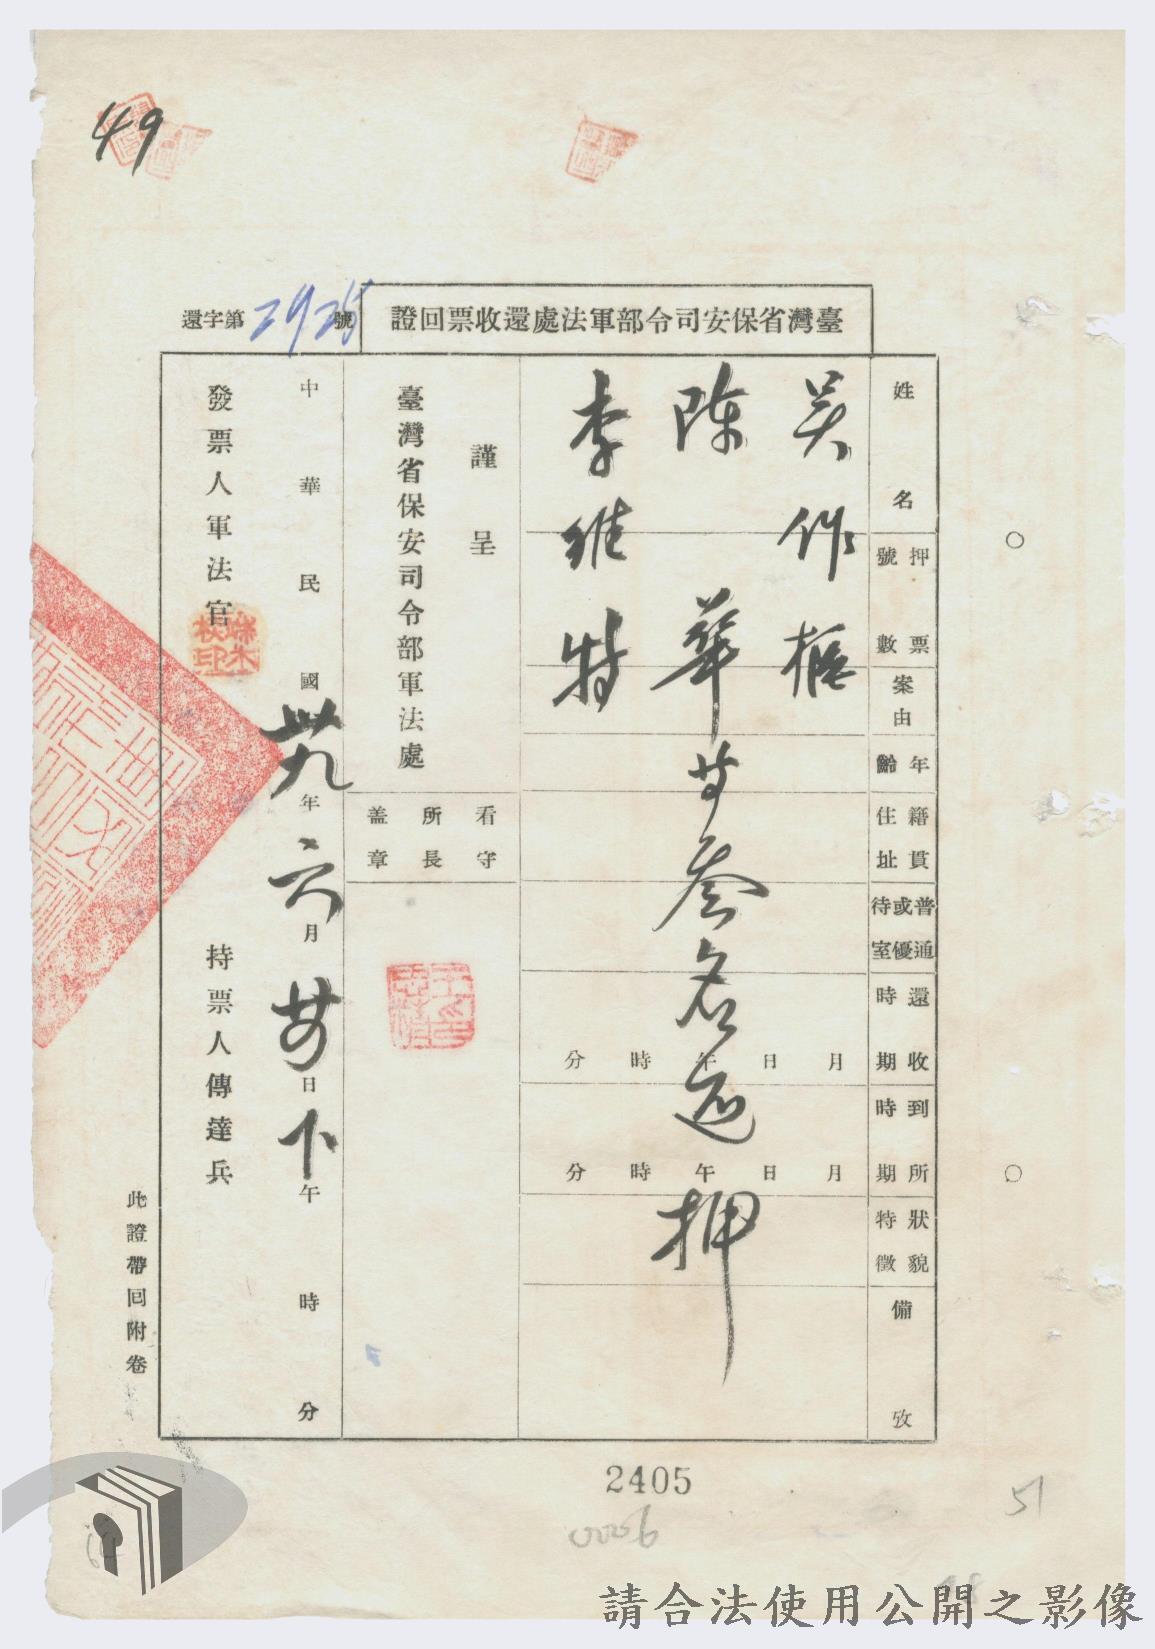 49
臺灣省保安司令部軍法處還收票回證
還字第2925號
姓名
押票號數
案由
年齡
籍貫住址
普通或優待室
還收時期
到所時期
狀貌特徵
備攷
吳作樞
陳華等叁名還押
李維特
月日午時分
月日午時分
謹呈
臺灣省保安司令部軍法處
看守所長蓋章
中華民國卅九年六月廿日下午時分
發票人軍法官
持票人傳達兵
此證帶回附卷
2405
51
請合法使用公開之影像